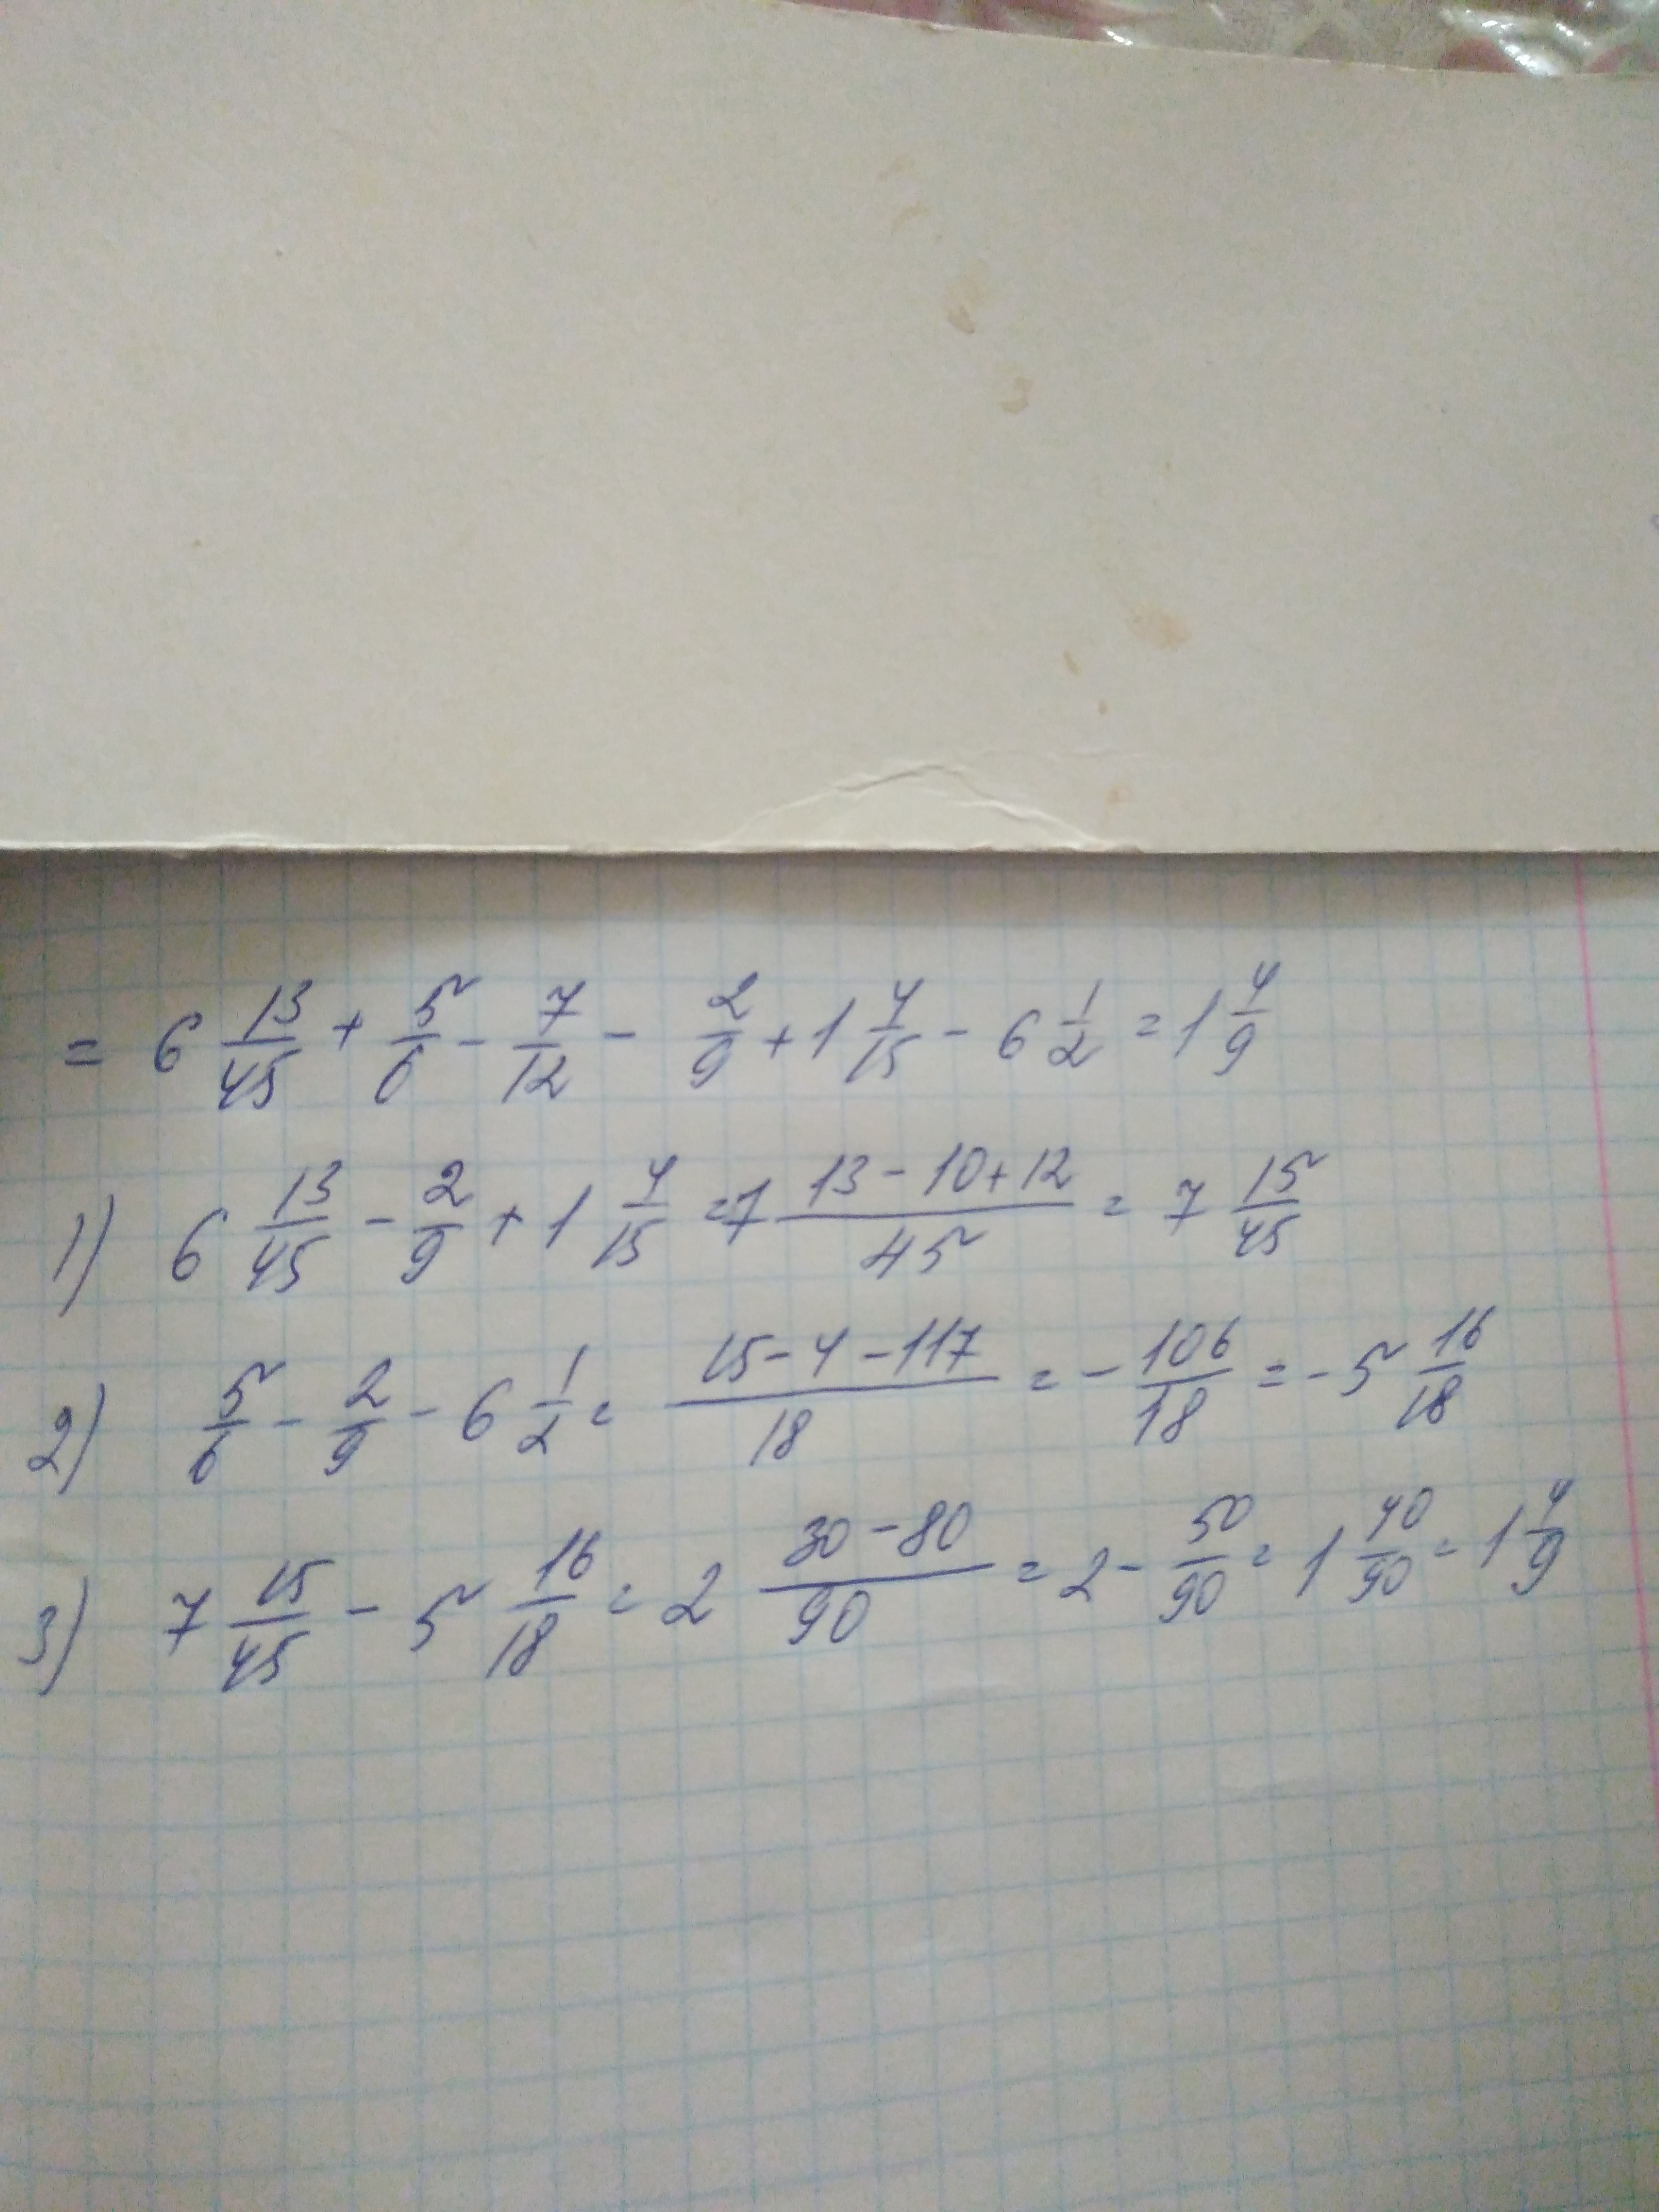 = 6 13/45 + 5/6 - 7/12 - 2/9 + 1 4/15 - 6 1/2 = 1 4/9
1) 6 13/45 - 2/9 + 1 4/15 = 7 (13 - 10 + 12)/45 = 7 15/45
2) 5/6 - 2/9 - 6 1/2 = (15 - 4 - 117)/18 = - 106/18 = - 5 16/18
3) 7 15/45 - 5 16/18 = 2 (30 - 80)/90 = 2 - 50/90 = 1 40/90 = 1 4/9